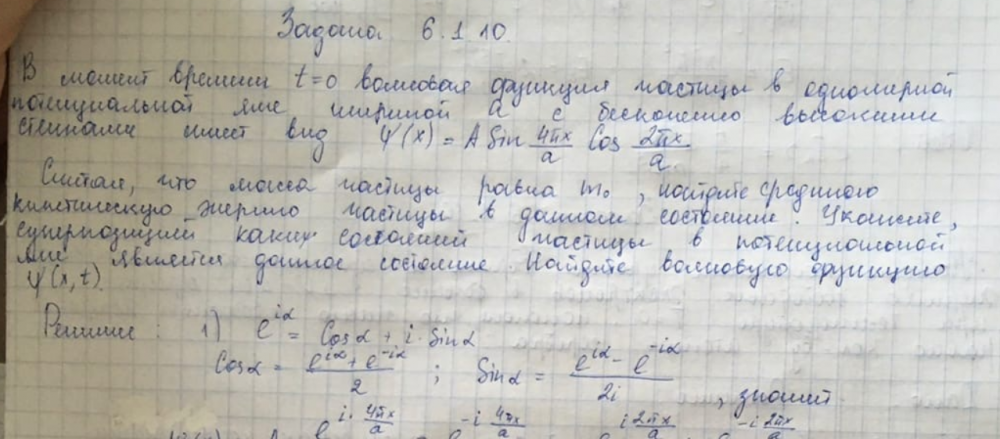 Задача 6.1.10.
В момент времени t=0 волновая функция частицы в одномерной
потенциальной яме шириной a с бесконечно высокими
стенками имеет вид ψ(x) = A Sin 4πx/a Cos 2πx/a
Считая, что масса частицы равна m₀, найдите среднюю
кинетическую энергию частицы в данном состоянии. Укажите,
суперпозицией каких состояний частицы в потенциальной
яме является данное состояние. Найдите волновую функцию
ψ(x,t).
Решение: 1) e^{iα} = Cosα + i·Sinα
Cosα = (e^{iα} + e^{-iα})/2 ; Sinα = (e^{iα} - e^{-iα})/2i , значит
e^{i·4πx/a} e^{-i 4πx/a} e^{i 2πx/a} e^{-i 2πx/a}